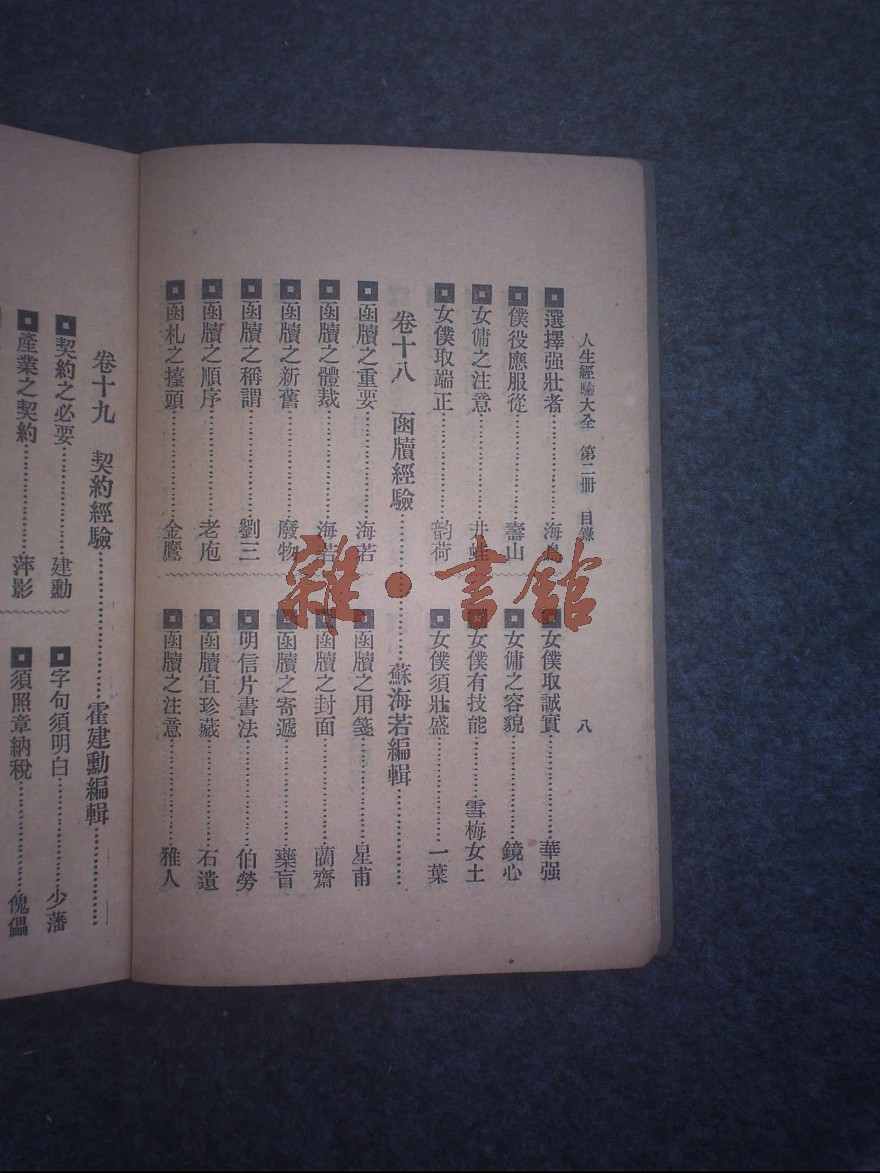 人生經驗大全　第二冊　目錄　八
選擇强壯者………海鳥
僕役應服從………壽山
女傭之注意………井蛙
女僕取端正………韵荷
女僕取誠實………華强
女傭之容貌………鏡心
女僕有技能………雪梅女士
女僕須壯盛………一葉
卷十八　函牘經驗………蘇海若編輯………
函牘之重要………海若
函牘之體裁………海若
函牘之新舊………廢物
函牘之稱謂………劉三
函牘之順序………老庖
函札之擡頭………金鷹
函牘之用箋………星甫
函牘之封面………蘭齋
函牘之寄遞………藥盲
明信片書法………伯勞
函牘宜珍藏………石遺
函牘之注意………雅人
卷十九　契約經驗………霍建勳編輯………
契約之必要………建勳
產業之契約………萍影
字句須明白………少藩
須照章納稅………傀儡
雜·書館